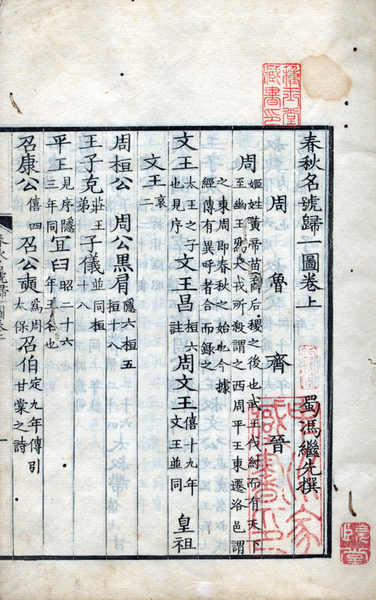 春秋名號歸一圖卷上
蜀馮繼先撰
周 魯 齊 晉
周 姬姓黃帝苗裔后稷之後也武王伐紂而有天下
至幽王為犬戎所殺謂之西周平王東遷洛邑謂
之東周即春秋之始也今據
經傳有異呼者合而錄之
文王 太王之子也見序 文王昌 桓六註 周文王 僖十九年文王並同 皇祖
文王 哀二
周桓公 周公黑肩 隱六桓五桓十八
王子克 莊王 子儀 並同桓十八
平王 見序隱三年同 宜臼 昭二十六年王名也
召康公 僖四 召公奭 為周太保 召伯 定九年傳引甘棠之詩